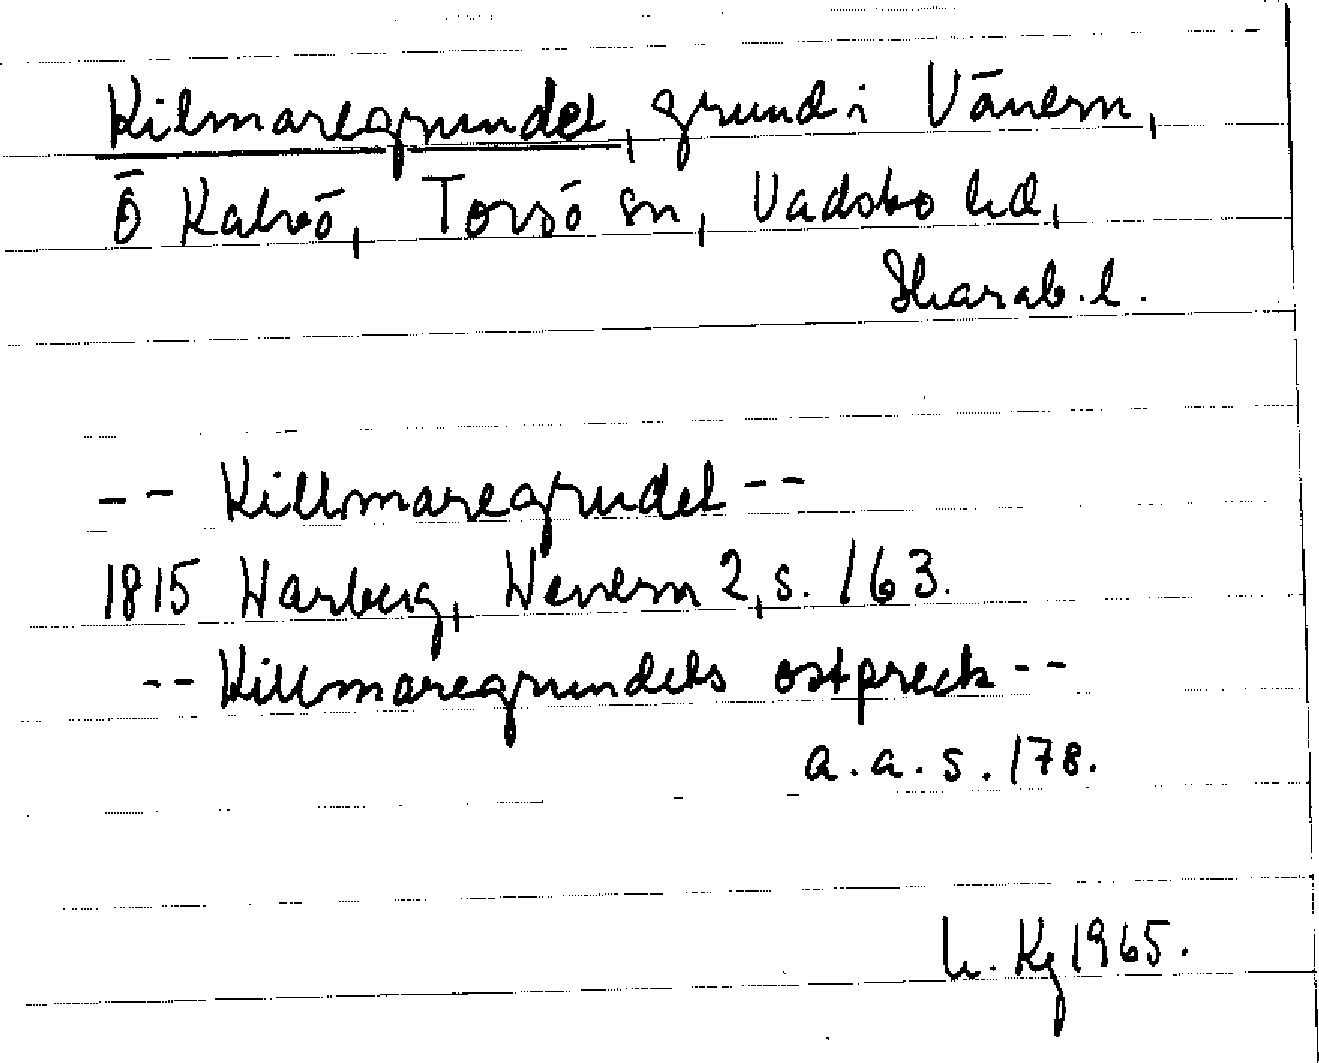 Kilmaregrundet, grund i Vänern,
Ö Kalvö, Torsö sn, Vadsbo hd,
Skarab. l.
-- Killmaregrudet --
1815 Warberg, Wenern 2, s. 163.
-- Killmaregrundets ostpreck --
a.a. s. 178.
h. Kg 1965.